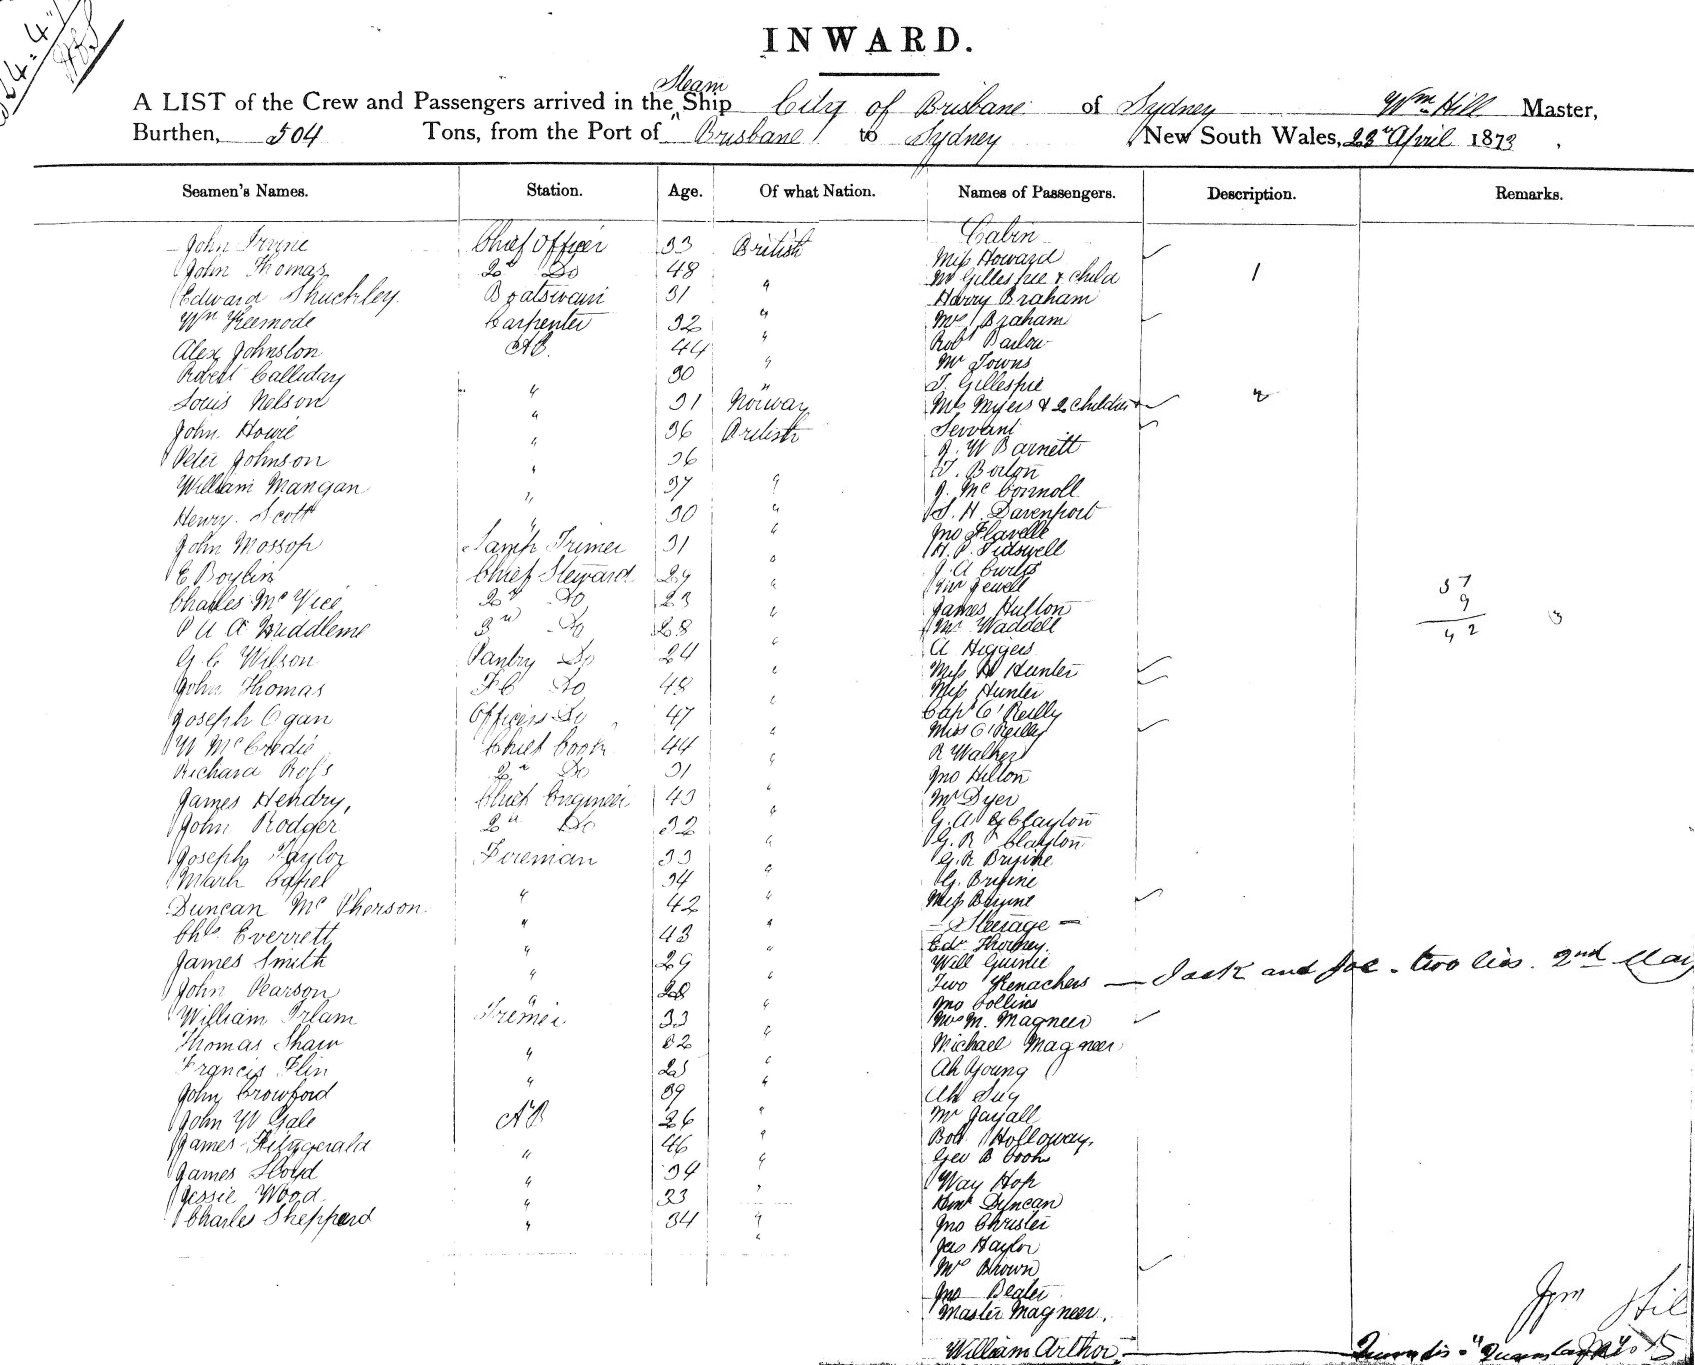 INWARD.
Steam
A LIST of the Crew and Passengers arrived in the Ship City of Brisbane of Sydney Wm Hill Master,
Burthen, 504 Tons, from the Port of Brisbane to Sydney New South Wales, 23rd April 1873
Seamen's Names. Station. Age. Of what Nation. Names of Passengers. Description. Remarks.
Cabin
John Irvine Chief Officer 33 British Miss Howard
John Thomas 2nd Do 48 " Mr Gillespie & Child 1
Edward Shuckley Boatswain 31 " Harry Braham
Wm Kermode Carpenter 32 " Mrs Braham
Alex Johnston AB. 44 " Robt Barlow
Mr Towns
Robert Calliday " 30 T. Gillespie
Louis Nelson " 31 Norway Mrs Myers & 2 Children & 2
John Howe " 36 British Servant
J. W Barnett
Peter Johnson " 36 T. Boston
William Mangan " 37 " J. McConnoll
Henry Scott " 30 " S. H. Davenport
Jno Flavelle
John Mossop Lamp Trimer 31 " H. P. Tidswell
J. A Curtis
E Boylin Chief Steward 29 " Jewell
Charles McVice 2nd Do 23 " James Hutton
P U A Huddleme 3rd Do 28 " Mr Waddell
A Higgers
G C Wilson Pantry Do 24 " Miss H Hunter
John Thomas F.C Do 48 " Miss Hunter
Joseph Ogan Officers Do 47 " Capt O'Reilly
Miss O'Reilly
W McCredie Chief Cook 44 " R Walker
Richard Ross 2nd Do 31 " Jno Hilton
James Hendry, Chief Engineer 43 " Mr Dyer
John Rodger 2nd Do 32 " G. A Clayton
G. R Clayton
Joseph Taylor Fireman 33 " G. R
Mark Capel 34 " G.
Duncan McPherson " 42 " Miss
- Steerage -
Chls Everrett " 43 " Edw
James Smith " " 29 " Will Guinie
John Pearson " 28 " Two Kenackers — Jack and Joe - two lies. 2nd May
Jno Collins
William Irlam Trimer 33 " Mrs M. Magneer
Thomas Shaw " 32 " Michael Magneer
Francis Flin 25 " Ah Young
John Crowford " 39 " Ah Sug
John W Gale AB 26 " Mr Jayall
James Fitzgerald 46 " Bob Holloway.
James Lloyd " 34 " Geo B Cook
Jessie Wood " 33 " Way Hop
Charles Sheppard " 34 " Duncan
Jno Christer
Jas Haylor
Mrs Brown
Jno Beater
Master Magneer.
William Arthor
57
9
42
3
Wm Hill